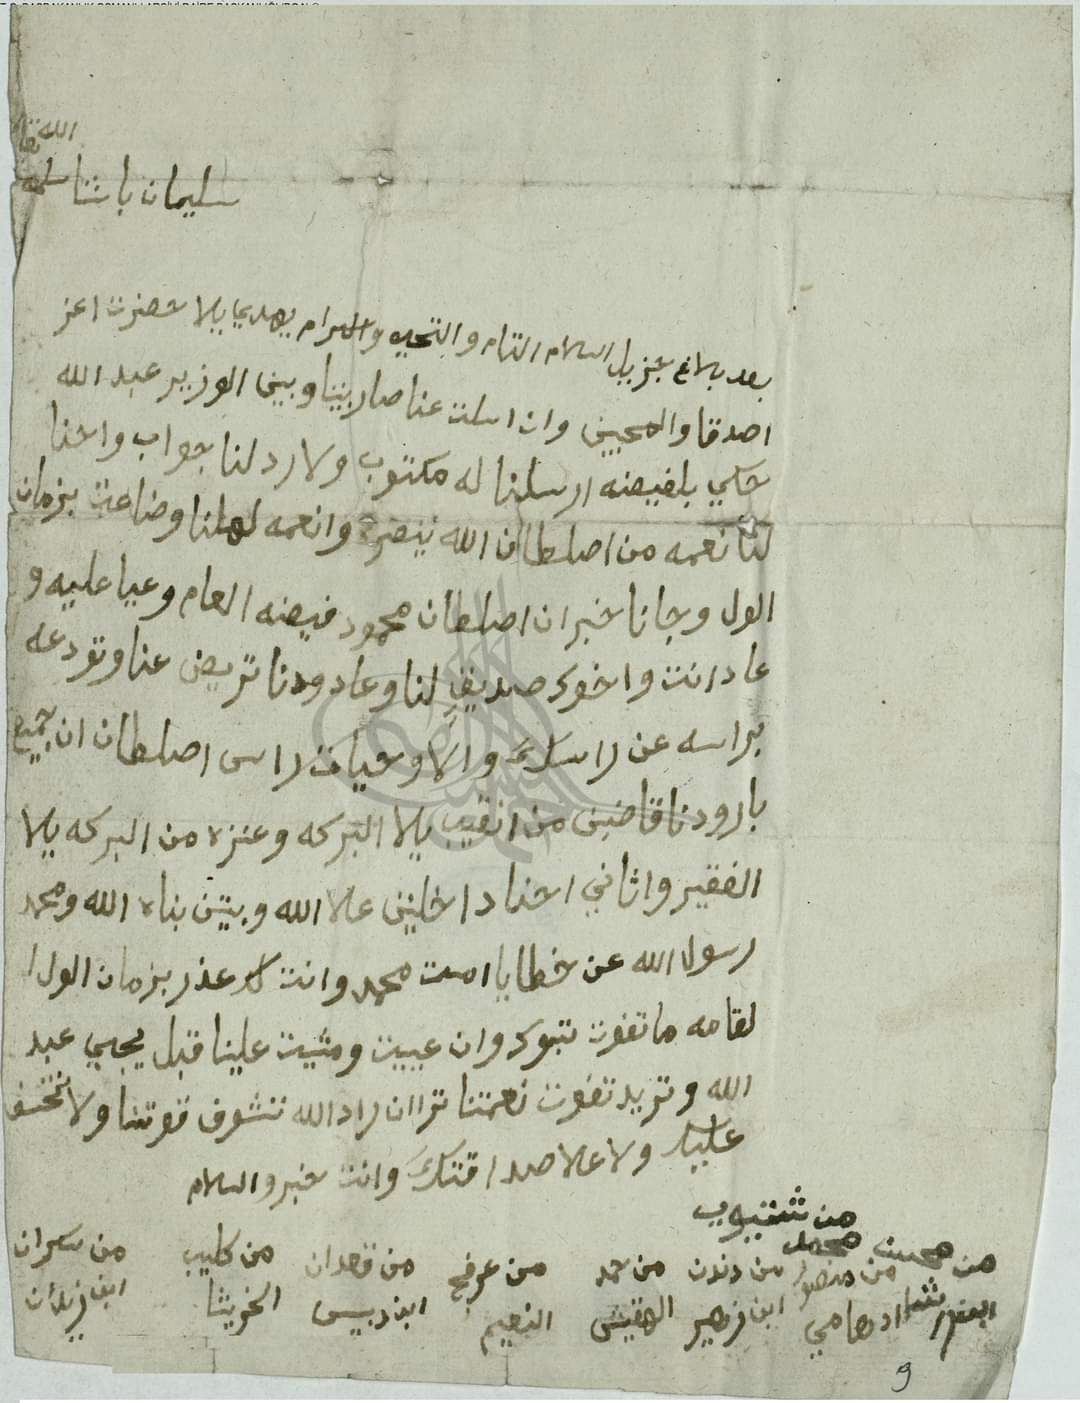 الله تعا
سليمان باشا سلمه
بعد بلاغ جزيل السلام التام والتحيه والاكرام يهدي يلا حضرت اعز
اصدقا والمحبين وان اسلت عنا صار بيننا وبين الوزير عبد الله
حكي بلفيضه ارسلنا له مكتوب ولا رد لنا جواب واحنا
لنا نعمه من اصلطان الله ينصره وانعمه لهلنا وضاعت بزمان
الول وجانا خبر ان اصلطان محمود فيضه العام وعيا عليه و
عاد انت واخوك صديق لنا وعاد ودنا تريض عنا وتودعه
براسه عن راسك والا وحيات راس اصلطان ان جميع
بارودنا قاضين من انقيب يلا البركه وعنزه من البركه يلا
الفقير واثاني احنا داخلين علا الله وبيتن بناه الله ومحمد
رسول الله عن خطايا امت محمد وانت لك عذر بزمان الول
لقامه ما تفوت تبوك وان عييت ومشيت علينا قبل يجي عبد
الله وتريد تفوت نعمتنا ترا ان راد الله تشوف قوتنا ولا نخف
عليك ولا علا صداقتك وانت خبر والسلام
من شتيوي
من محسن محمد من منصور من دندن من حمد من عرفج من قعدان من كليب من سكران
ابن ادهامي ابن زهير الهفيش النعيم ابن دبيس الخريشا ابن
9